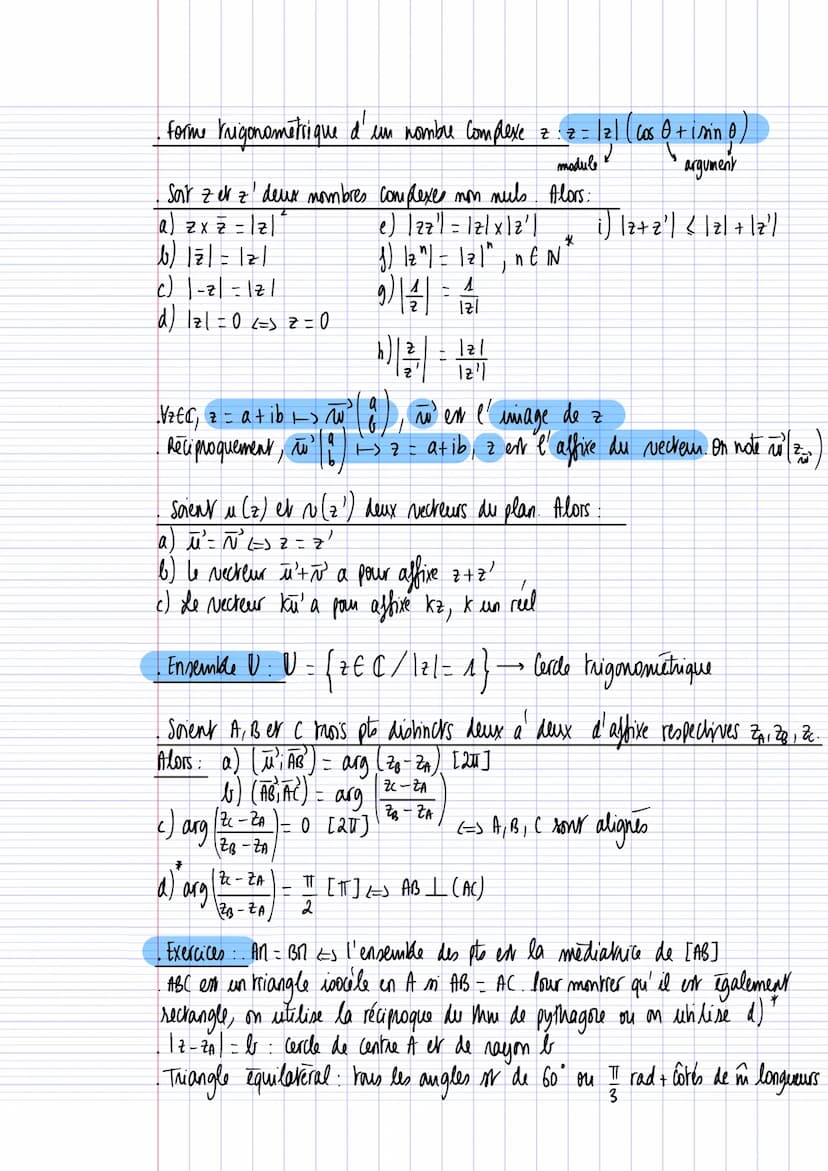 . Forme trigonométrique d'un nombre complexe z : z = |z| (cos θ + i sin θ)
module argument
. Soit z et z' deux nombres complexes non nuls. Alors:
a) z x z̄ = |z|² e) |zz'| = |z| x |z'| i) |z+z'| ≤ |z| + |z'|
b) |z̄| = |z| f) |zⁿ| = |z|ⁿ, n ∈ ℕ*
c) |-z| = |z| g) |1/z| = 1/|z|
d) |z| = 0 <=> z = 0
h) |z/z'| = |z|/|z'|
. ∀z∈ℂ, z = a+ib ↦ w⃗ (a b), w⃗ est l'image de z
. Réciproquement, w⃗ (a b) ↦ z = a+ib, z est l'affixe du vecteur. On note w⃗ (z_w⃗)
. Soient u(z) et v(z') deux vecteurs du plan. Alors :
a) u⃗ = v⃗ <=> z = z'
b) le vecteur u⃗+v⃗ a pour affixe z+z'
c) Le vecteur ku⃗ a pour affixe kz, k un réel
. Ensemble U : U = {z ∈ ℂ / |z| = 1} → Cercle trigonométrique
. Soient A, B et C trois pts distincts deux à deux d'affixe respectives z_A, z_B, z_C.
Alors : a) (u⃗; AB⃗) = arg (z_B - z_A) [2π]
b) (AB⃗; AC⃗) = arg ((z_C - z_A)/(z_B - z_A))
c) arg ((z_C - z_A)/(z_B - z_A)) = 0 [2π] <=> A, B, C sont alignés
d)* arg ((z_C - z_A)/(z_B - z_A)) = π/2 [π] <=> AB ⊥ (AC)
. Exercices : . AM = BM <=> l'ensemble des pts est la médiatrice de [AB]
. ABC est un triangle isocèle en A si AB = AC. Pour montrer qu'il est également
rectangle, on utilise la réciproque du thm de pythagore ou on utilise d)*
. |z - z_A| = b : cercle de centre A et de rayon b
. Triangle équilatéral : tous les angles st de 60° ou π/3 rad + côtés de m̂ longueurs